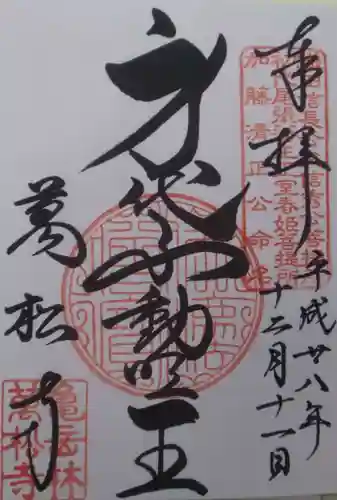 奉拝
平成廿八年
十二月十一日
身代不動明王
萬松寺
加藤清正公命名
亀岳林
萬松寺